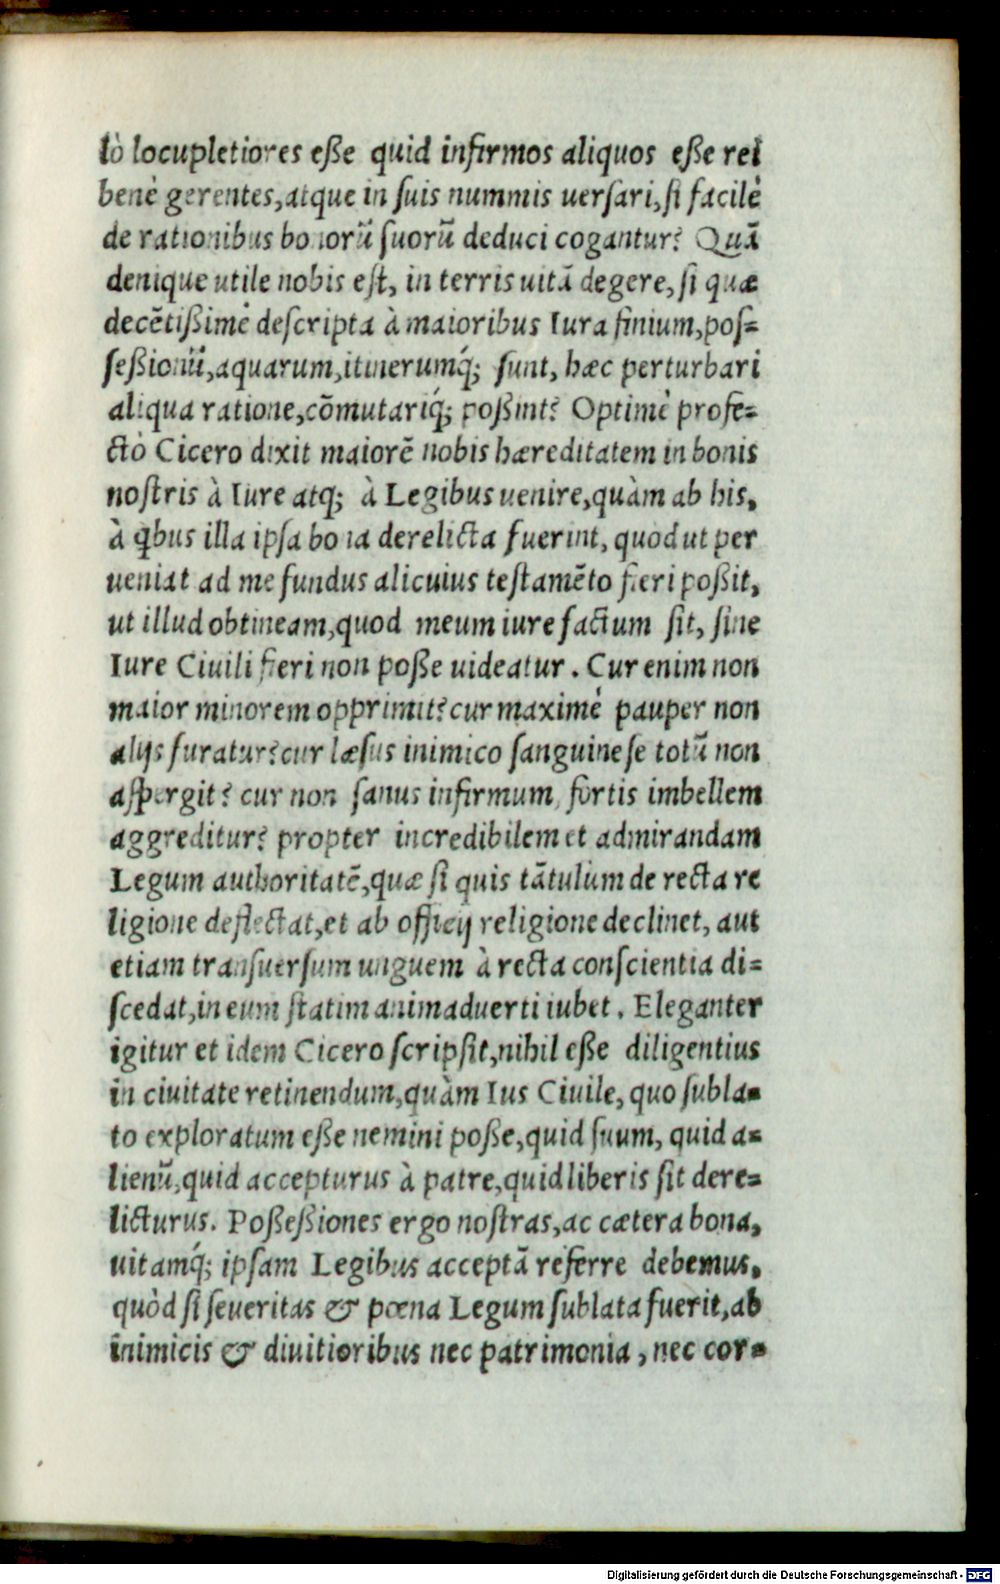 lò locupletiores eſſe quid infirmos aliquos eſſe rei
benè gerentes, atque in ſuis nummis uerſari, ſi facilè
de rationibus bonorũ ſuorũ deduci cogantur? Quã
denique utile nobis eſt, in terris uitã degere, ſi quæ
decẽtißimè deſcripta à maioribus Iura finium, poſ=
ſeßionũ, aquarum, itinerumq́; ſunt, hæc perturbari
aliqua ratione, cõmutariq́; poßint? Optimè profe=
ctò Cicero dixit maiorẽ nobis hæreditatem in bonis
noſtris à Iure atq; à Legibus uenire, quàm ab his,
à qbus illa ipſa bona derelicta fuerint, quod ut per
ueniat ad me fundus alicuius teſtamẽto fieri poßit,
ut illud obtineam, quod meum iure factum ſit, ſine
Iure Ciuili fieri non poße uideatur. Cur enim non
maior minorem opprimit? cur maximè pauper non
alijs furatur? cur læſus inimico ſanguine ſe totũ non
aſpergit? cur non ſanus infirmum, fortis imbellem
aggreditur? propter incredibilem et admirandam
Legum authoritatẽ, quæ ſi quis tãtulum de recta re
ligione deflectat, et ab officij religione declinet, aut
etiam tranſuerſum unguem à recta conſcientia di=
ſcedat, in eum ſtatim animaduerti iubet. Eleganter
igitur et idem Cicero ſcripſit, nihil eße diligentius
in ciuitate retinendum, quàm Ius Ciuile, quo ſubla=
to exploratum eße nemini poße, quid ſuum, quid a=
lienũ, quid accepturus à patre, quid liberis ſit dere=
licturus. Poßeßiones ergo noſtras, ac cætera bona,
uitamq́; ipſam Legibus acceptã referre debemus,
quòd ſi ſeueritas & pœna Legum ſublata fuerit, ab
inimicis & diuitioribus nec patrimonia, nec cor=
Digitalisierung gefördert durch die Deutsche Forschungsgemeinschaft - DFG